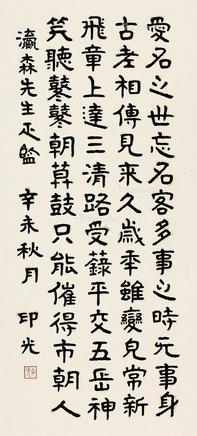 愛名之世忘名客多事之時无事身
古老相傳見來久歲秊雖變皃常新
飛章上達三清路受籙平交五岳神
笑聽鼕鼕朝暮鼓只能催得市朝人
瀛森先生疋鑒 辛未秋月 印光